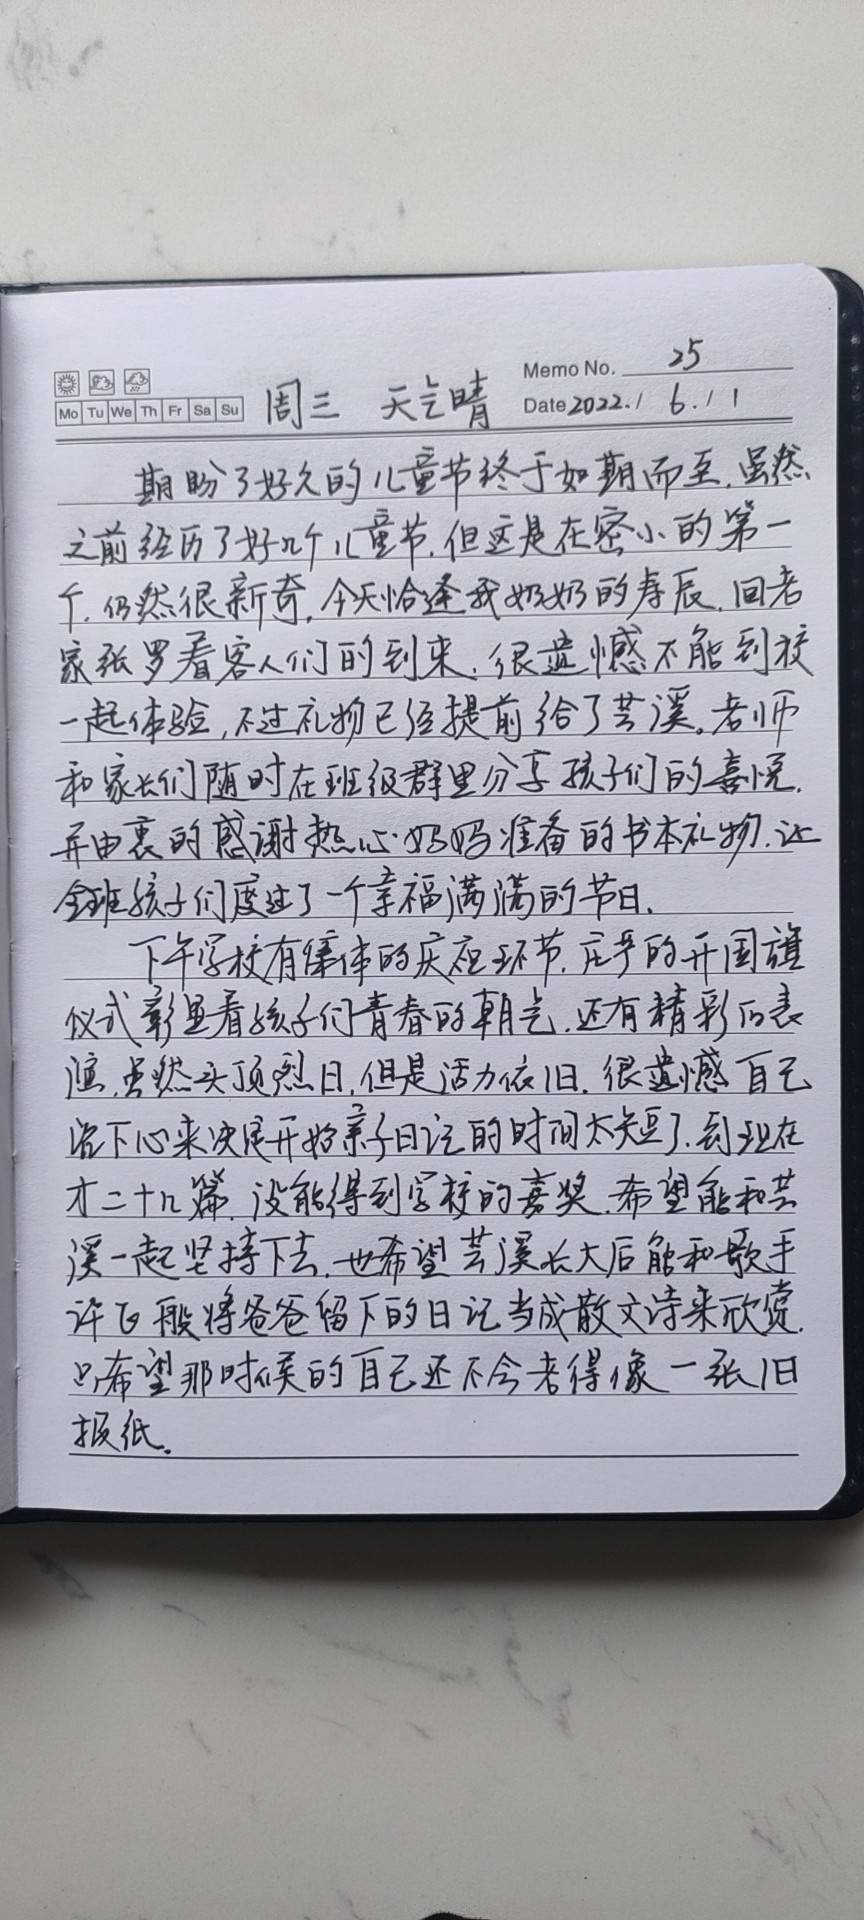 Memo No. 25
Mo Tu We Th Fr Sa Su 周三 天气晴 Date 2022./ 6./ 1
期盼了好久的儿童节终于如期而至,虽然
之前经历了好几个儿童节,但这是在密小的第一
个,仍然很新奇,今天恰逢我奶奶的寿辰,回老
家张罗着客人们的到来,很遗憾不能到校
一起体验,不过礼物已经提前给了芸溪。老师
和家长们随时在班级群里分享孩子们的喜悦,
并由衷的感谢热心妈妈准备的书本礼物,让
全班孩子们度过了一个幸福满满的节日.
下午学校有集体的庆祝环节,庄严的升国旗
仪式彰显着孩子们青春的朝气,还有精彩的表
演,虽然头顶烈日,但是活力依旧.很遗憾自己
沉下心来决定开始亲子日记的时间太短了,到现在
才二十几篇,没能得到学校的嘉奖,希望能和芸
溪一起坚持下去,也希望芸溪长大后能和歌手
许飞般将爸爸留下的日记当成散文诗来欣赏,
只希望那时候的自己还不会老得像一张旧
报纸.